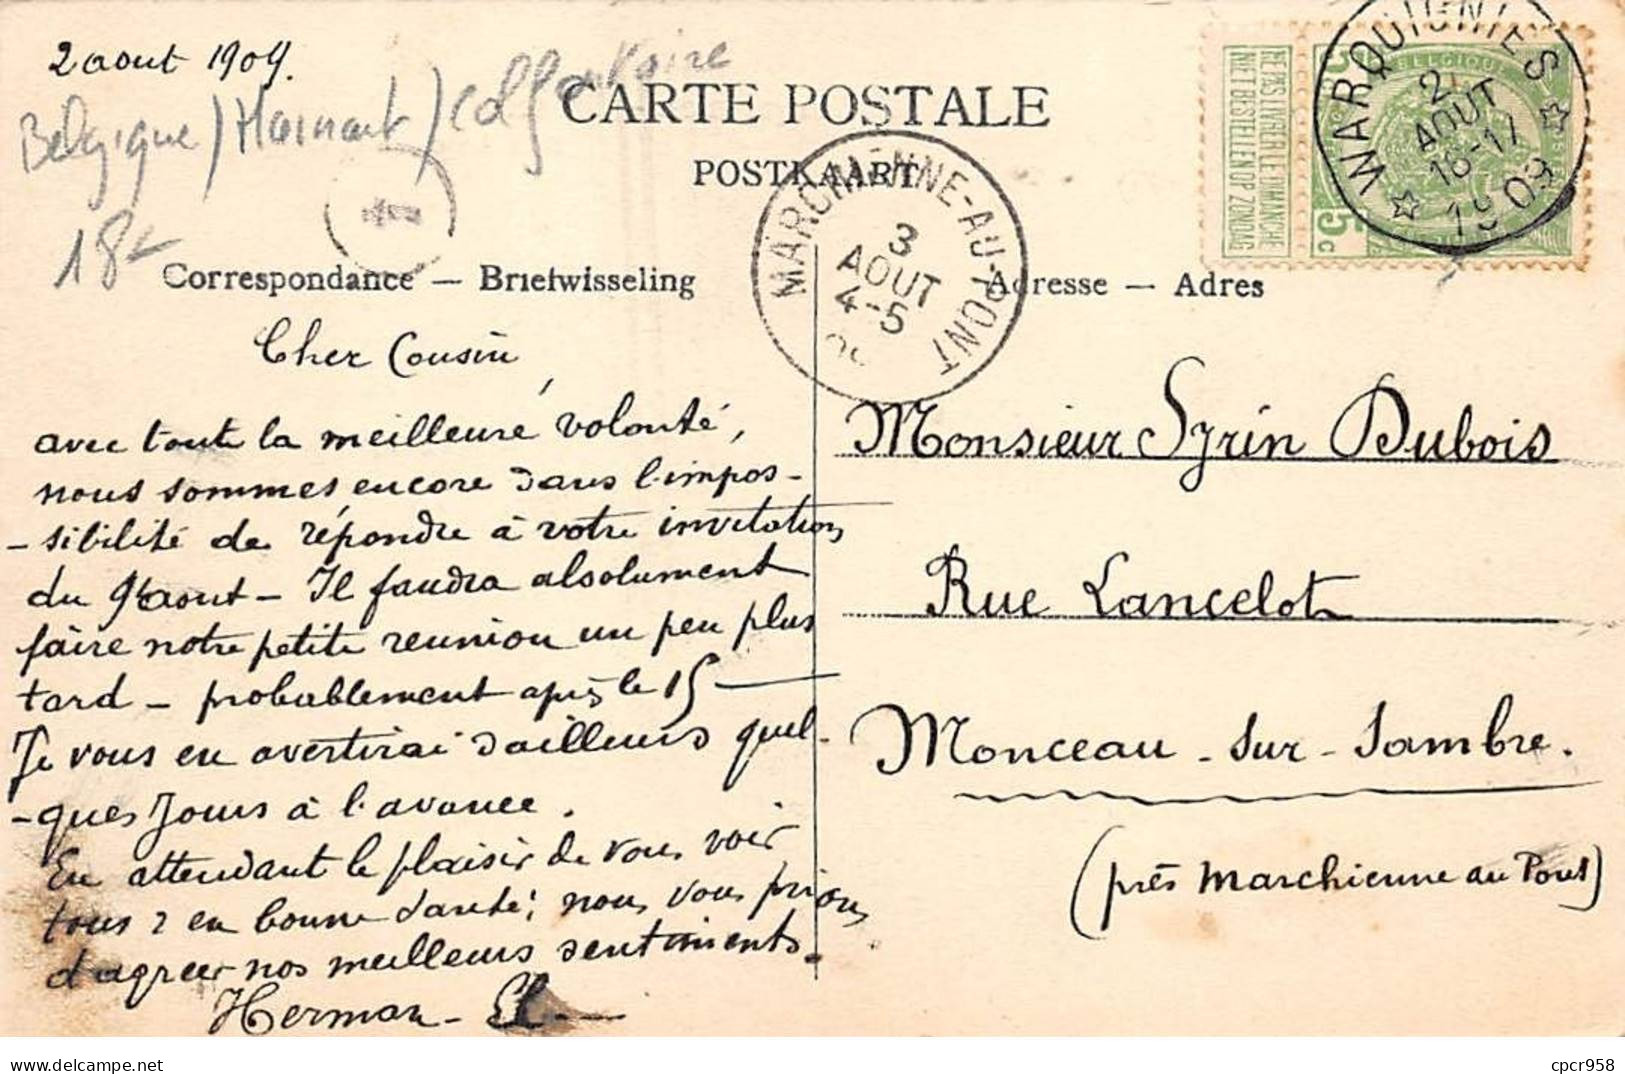 2 aout 1909.
Belgique / Hainaut /
18
CARTE POSTALE
POSTKAART
NE PAS LIVRER LE DIMANCHE
NIET BESTELLEN OP ZONDAG
BELGIQUE
5c
WARQUIGNIES
2
AOUT
16-17
1909
MARCHIENNE-AU-PONT
3
AOUT
4-5
Correspondance — Briefwisseling
Adresse — Adres
Cher Cousin,
avec toute la meilleure volonté,
nous sommes encore dans l'impos-
-sibilité de répondre à votre invitation
du 9 aout - Il faudra absolument
faire notre petite reunion un peu plus
tard - probablement après le 15
Je vous en avertirai d'ailleurs quel-
-ques jours à l'avance.
En attendant le plaisir de vous voir
tous en bonne santé; nous vous prions
d'agréer nos meilleurs sentiments.
Herman -
Monsieur Syrin Dubois
Rue Lancelot
Monceau - sur - Sambre.
(près Marchienne au Pont)
delcampe.net
cpcr958